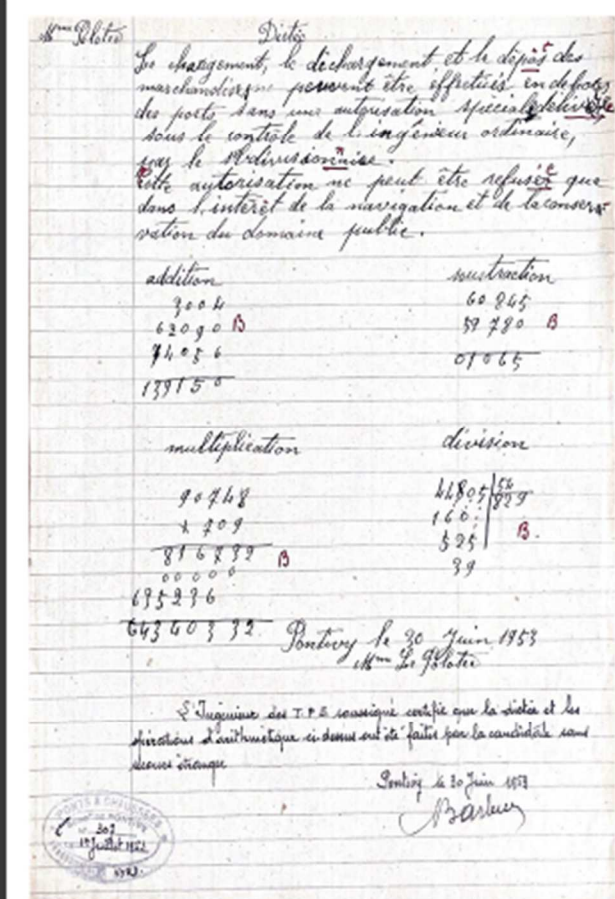 Mme Le Polotec
Dictée
Le chargement, le déchargement, et le dépôs des
marchandises ne peuvent être effectués en dehors
des ports sans une autorisation spéciale délivrée
sous le contrôle de l'ingénieur ordinaire,
par le subdivisionnaise.
Cette autorisation ne peut être refusée que
dans l'intérêt de la navigation et de la conser
vation du domaine public.
addition
soustraction
3004
60845
62090 B
59780 B
74056
01065
139150
multiplication
division
90748
44805 54
× 709
829
816732 B
160
00000
525 B.
635236
39
64340332
Pontivy le 30 Juin 1953
Mme Le Polotec
L'Ingénieur des T.P.E soussigné certifie que la dictée et les
opérations d'arithmétique ci dessus ont été faites par la candidate sans
secours étranger
Pontivy le 30 Juin 1953
PONTS & CHAUSSÉES
307
1er Juillet 1953